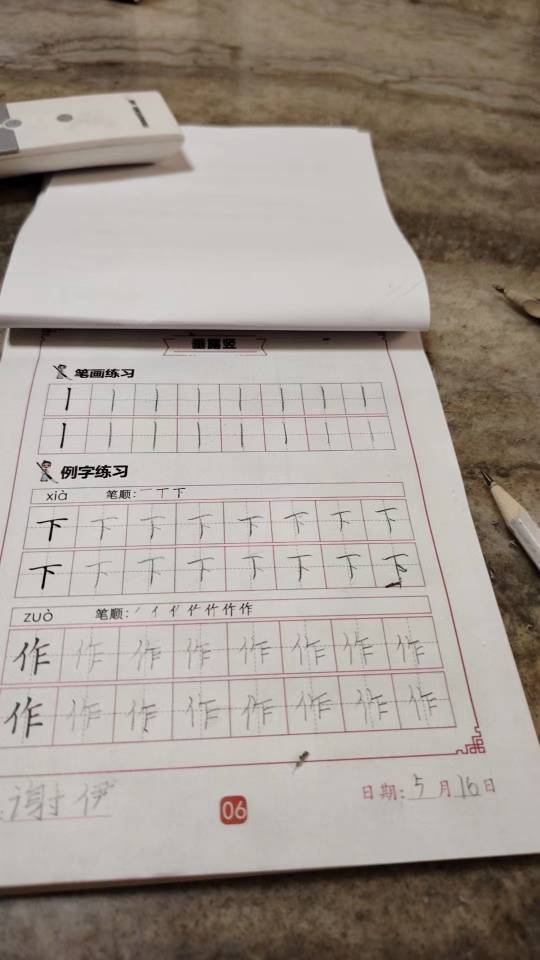 垂露竖
笔画练习
丨 丨 丨 丨 丨 丨 丨 丨
丨 丨 丨 丨 丨 丨 丨 丨
例字练习
xià 笔顺: 一 丅 下
下 下 下 下 下 下 下 下
下 下 下 下 下 下 下 下
zuò 笔顺:
作 作 作 作 作 作 作 作
作 作 作 作 作 作 作 作
谢伊
06
日期: 5月16日